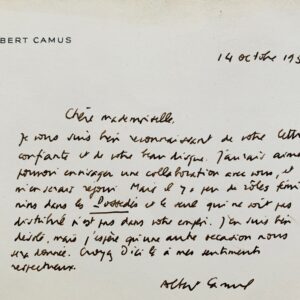 BERT CAMUS
14 octobre 195
Chère mademoiselle,
Je vous suis bien reconnaissant de votre lettre
confiante et de votre beau disque. J'aurais aimé
pouvoir envisager une collaboration avec vous, et
m'en serais réjoui. Mais il y a peu de rôles fémi
nins dans les Possédés et le seul qui ne soit pas
distribué n'est pas dans votre emploi. J'en suis bien
désolé, mais j'espère qu'une autre occasion nous
sera donnée. Croyez d'ici là à mes sentiments
respectueux.
Albert Camus